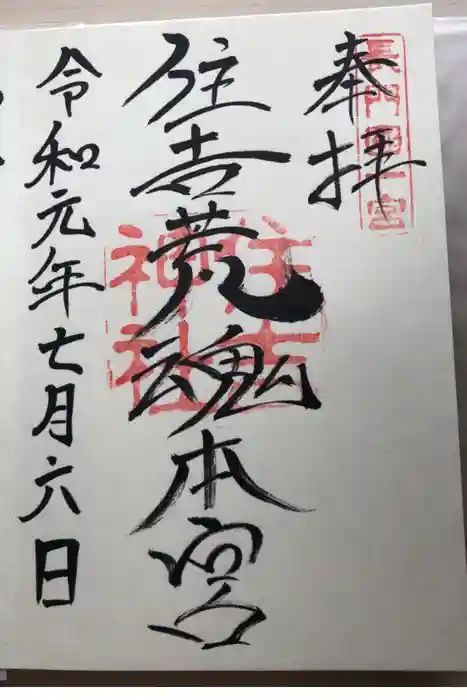 長門國一宮
奉拝
住吉荒魂本宮
住吉神社
令和元年七月六日